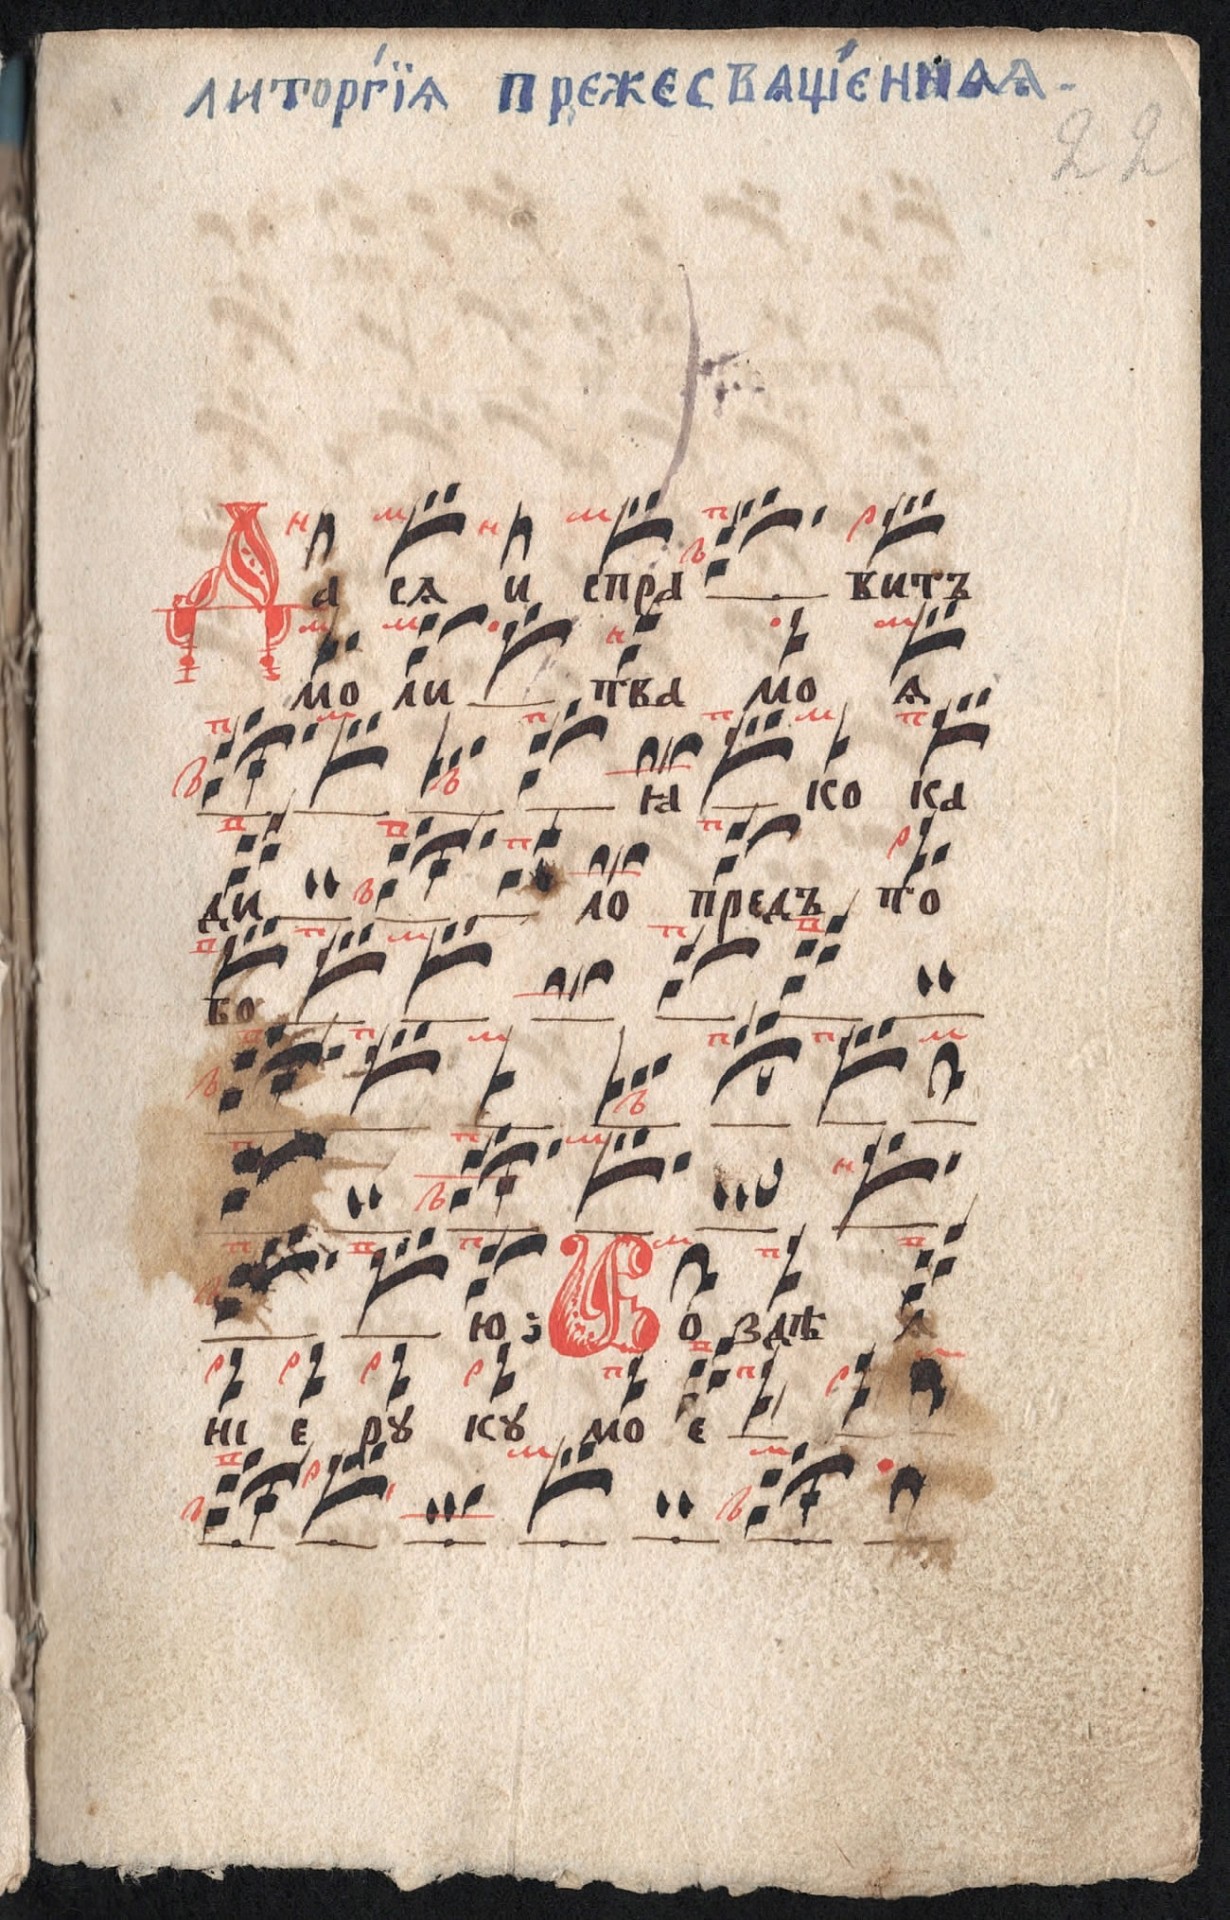 литоргїѧ прежесващеннаѧ -
22
Да сѧ испра витъ
мо ли тва мо ѧ
ꙗ ко ка
ди ло предъ то
бо
ю : Во здѣ
ні е рꙋ кꙋ мо е